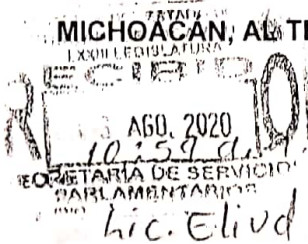 MICHOACÁN, AL T
LXXIII LEGISLATURA
RECIBIDO
AGO. 2020
10:59 a.
SECRETARÍA DE SERVICIO
PARLAMENTARIOS
Lic. Eliud